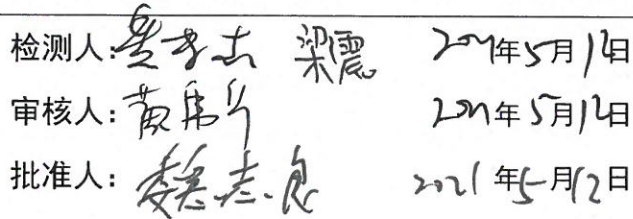 检测人: 梁震 2021年5月12日
审核人: 黄 2021年5月12日
批准人: 志良 2021年5月12日